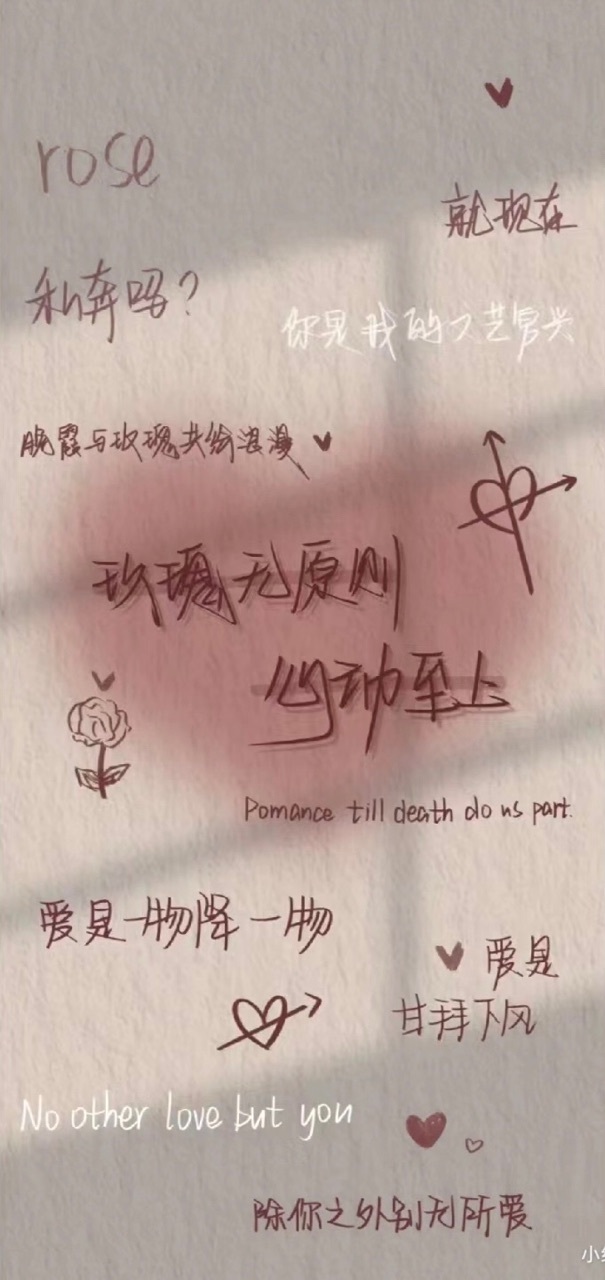 rose
就现在
私奔吗?
你是我的文艺复兴
晚霞与玫瑰共绘浪漫
玫瑰无原则
心动至上
Pomance till death do us part.
爱是一物降一物
爱是
甘拜下风
No other love but you
除你之外别无所爱
小红